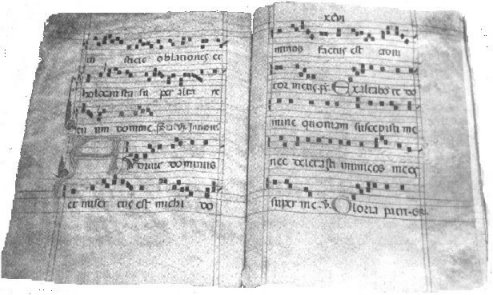 sticie oblationes et
holocausta su per alta re
tu um domine
dominus
et miser tus est michi do
xxvi
minus factus est adiu
tor meus. Exaltabo te do
mine quoniam suscepisti me
nec delectasti inimicos meos
super me. Gloria patri